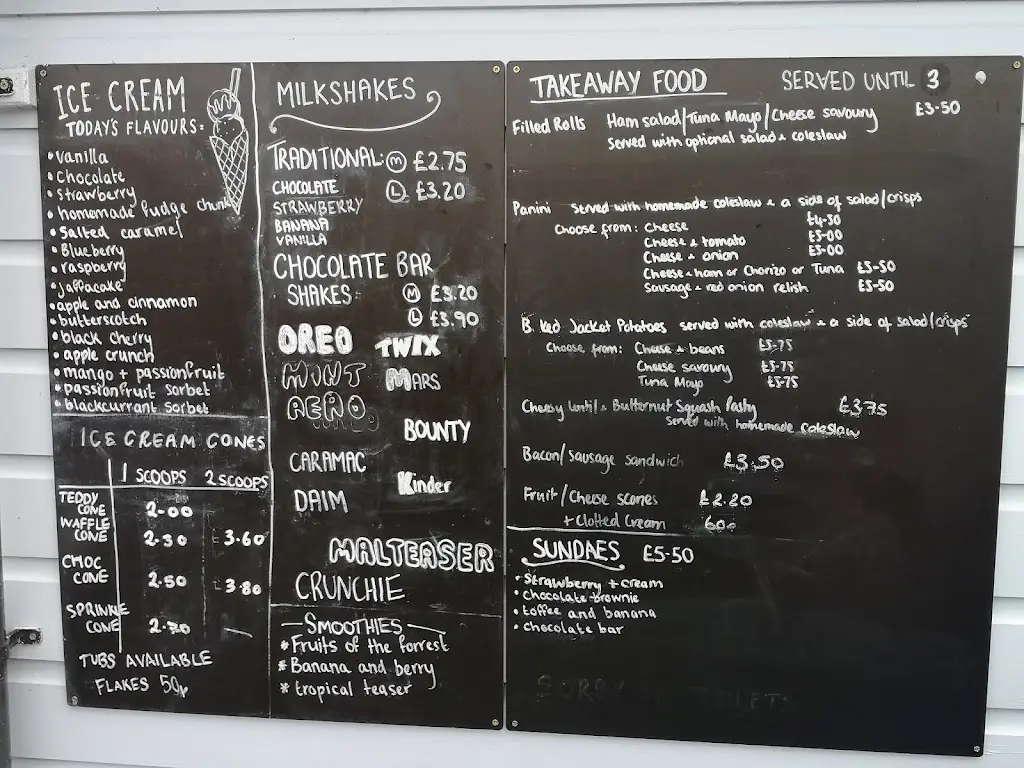 ICE CREAM
TODAY'S FLAVOURS:
• Vanilla
• Chocolate
• Strawberry
• homemade fudge chunk
• Salted caramel
• Blueberry
• raspberry
• jaffacake
• apple and cinnamon
• butterscotch
• black cherry
• apple crunch
• mango + passionfruit
• passionfruit sorbet
• blackcurrant sorbet
ICE CREAM CONES
1 SCOOPS 2 SCOOPS
TEDDY CONE 2-00
WAFFLE CONE 2.30 £3-60
CHOC CONE 2.50 3-80
SPRINKE CONE 2.70 —
TUBS AVAILABLE
FLAKES 50p
MILKSHAKES
TRADITIONAL: M £2.75
CHOCOLATE L £3.20
STRAWBERRY
BANANA
VANILLA
CHOCOLATE BAR
SHAKES M £3.20
L £3.90
OREO TWIX
MINT MARS
AERO
BOUNTY
CARAMAC
Kinder
DAIM
MALTEASER
CRUNCHIE
SMOOTHIES
* Fruits of the forrest
* Banana and berry
* tropical teaser
TAKEAWAY FOOD SERVED UNTIL 3
Filled Rolls Ham salad/Tuna Mayo/Cheese savoury £3-50
Served with optional salad & coleslaw
Panini served with homemade coleslaw & a side of salad/crisps
Choose from: Cheese £4-50
Cheese & tomato £5-00
Cheese & onion £5-00
Cheese & ham or Chorizo or Tuna £5-50
Sausage & red onion relish £5-50
B ked Jacket Potatoes served with coleslaw & a side of salad/crisps
Choose from: Cheese & beans £5-75
Cheese savoury £5-75
Tuna Mayo £5-75
Cheesy lentil & Butternut Squash Pasty £3.75
served with homemade coleslaw
Bacon/Sausage sandwich £3.50
Fruit/Cheese scones £2.20
+ Clotted Cream 60p
SUNDAES £5-50
• Strawberry + cream
• chocolate brownie
• toffee and banana
• chocolate bar
SORRY